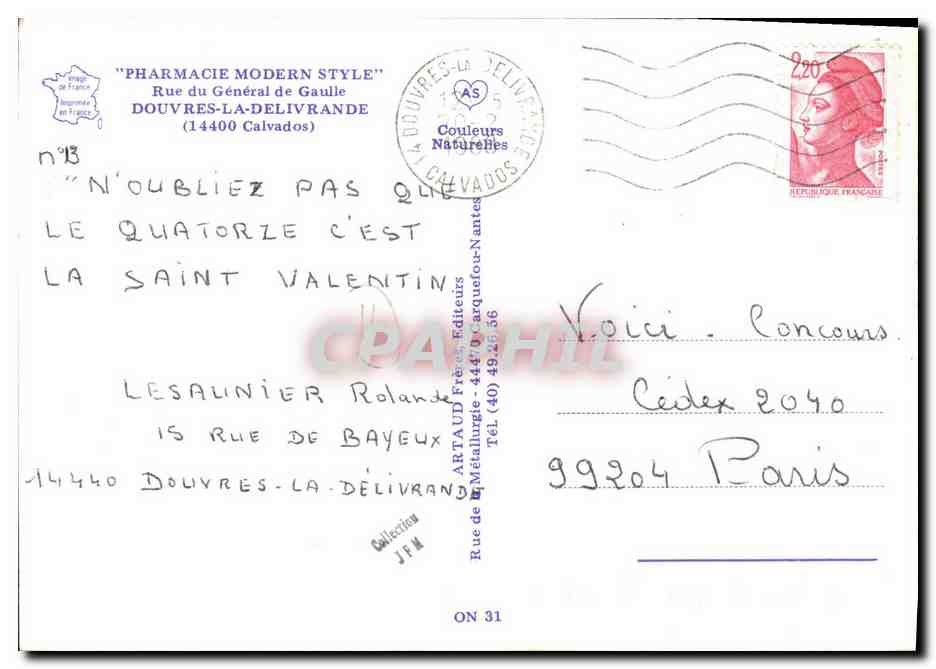 Image
de France
Imprimée
en France
"PHARMACIE MODERN STYLE"
Rue du Général de Gaulle
DOUVRES-LA-DELIVRANDE
(14400 Calvados)
AS
Couleurs
Naturelles
14 DOUVRES-LA DELIVRANDE
CALVADOS
2,20
POSTES
REPUBLIQUE FRANÇAISE
n°13
"N'OUBLIEZ PAS QUE
LE QUATORZE C'EST
LA SAINT VALENTIN.
LESAUNIER Rolande
15 RUE DE BAYEUX
14440 DOUVRES-LA-DÉLIVRANDE
Collection
JFM
ARTAUD Frères, Editeurs
Rue de la Métallurgie - 44470 Carquefou-Nantes
Tél. (40) 49.26.56
Voici - Concours
Cédex 2040
99204 Paris
CPAPHIL
ON 31